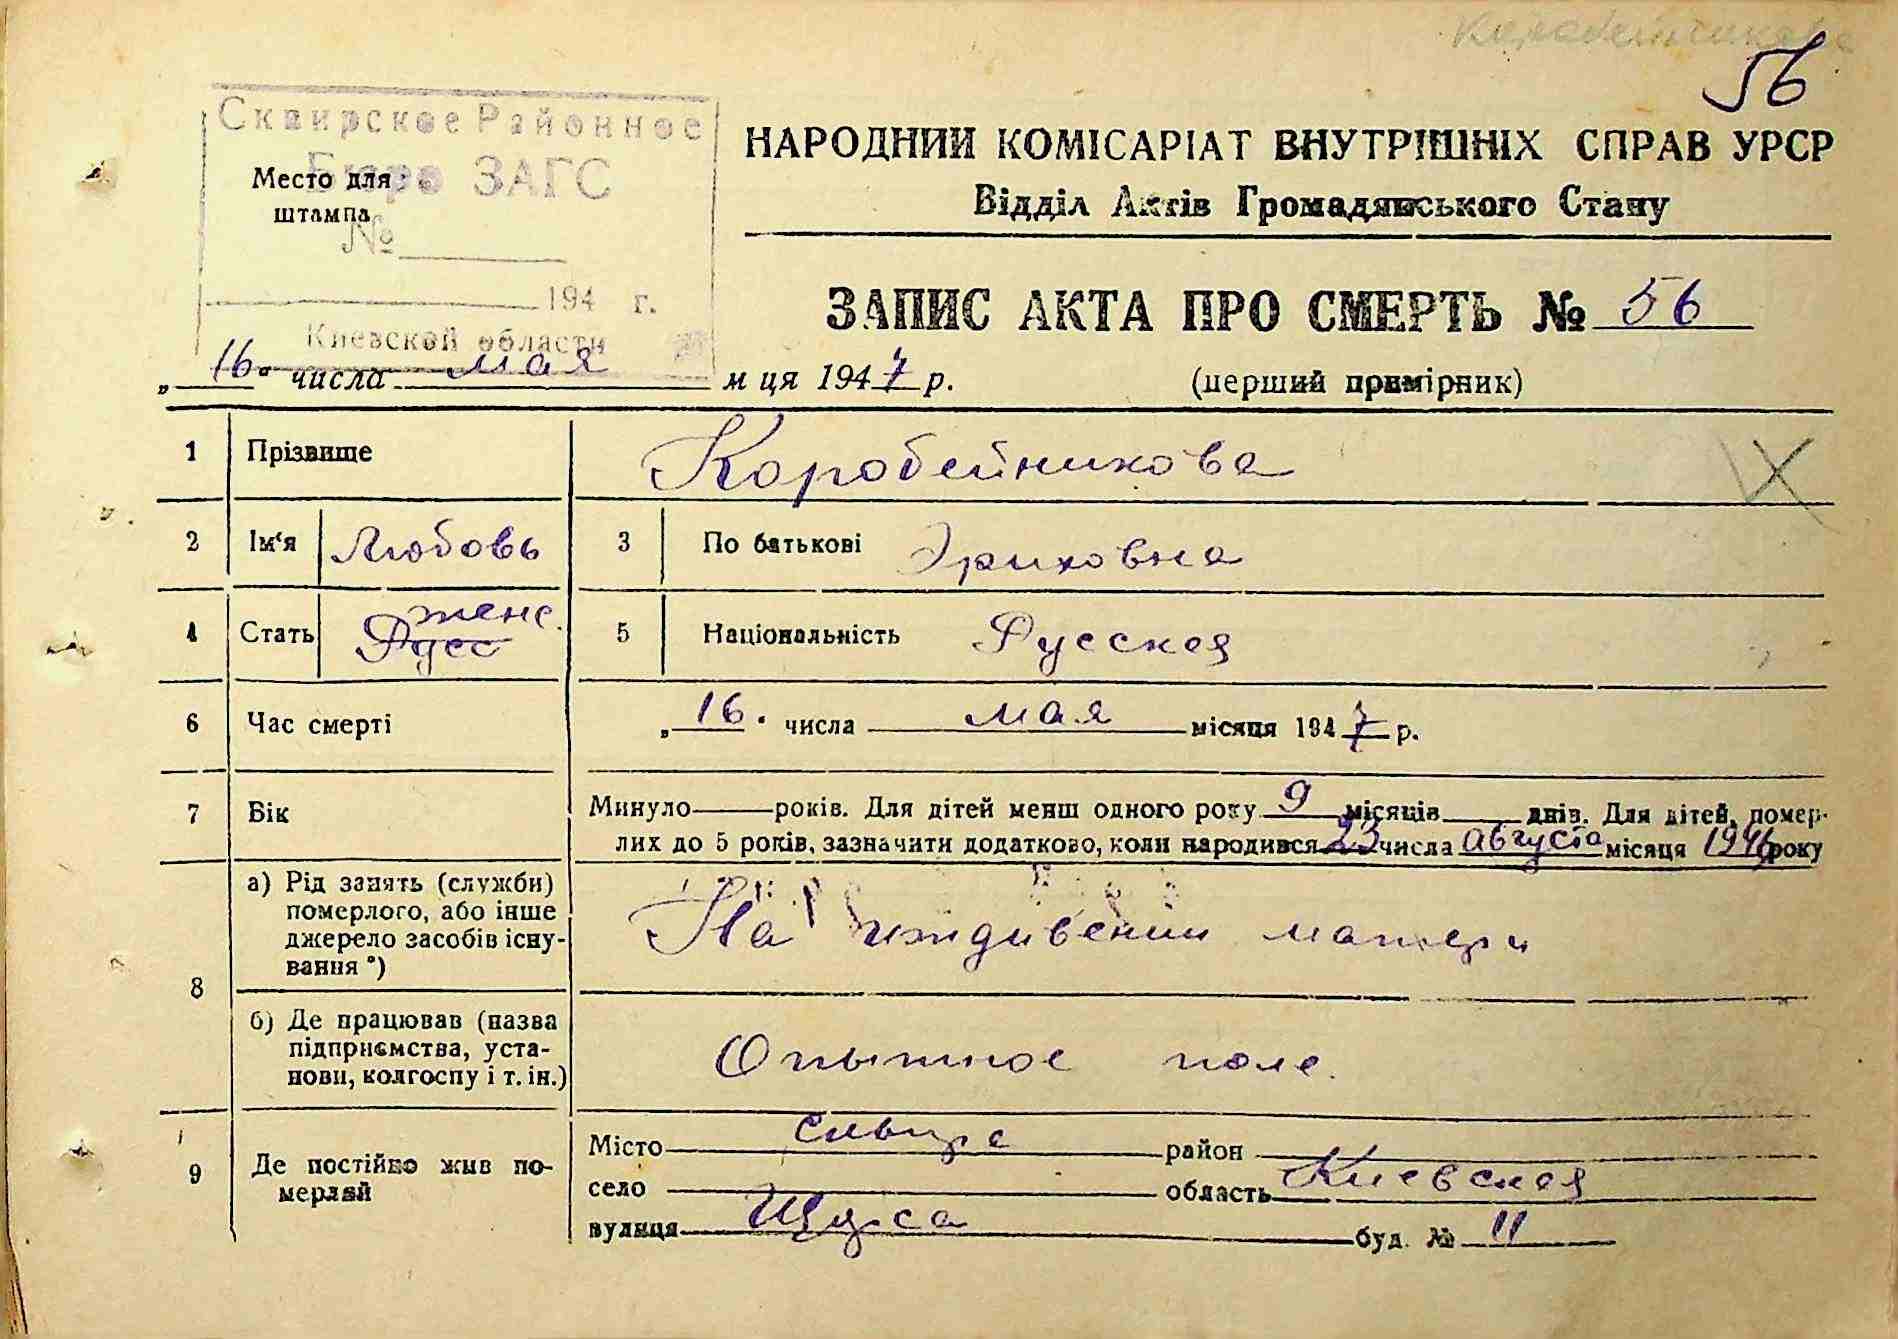 Коробейникова
56
Сквирское Районное
Бюро ЗАГС
Место для
штампа
№
194 г.
Киевской области
НАРОДНИЙ КОМІСАРІАТ ВНУТРІШНІХ СПРАВ УРСР
Відділ Актів Громадянського Стану
ЗАПИС АКТА ПРО СМЕРТЬ № 56
„16" числа мая м ця 1947 р.
(перший примірник)
1 Прізвище Коробейникова
2 Ім'я Любовь 3 По батькові Эриховна
женс.
4 Стать Русс 5 Національність Русская
6 Час смерті „16" числа мая місяця 1947 р.
7 Вік Минуло — років. Для дітей менш одного року 9 місяців — днів. Для дітей, помер-
лих до 5 років, зазначити додатково, коли народився 23 числа августа місяця 1946 року
8 а) Рід занять (служби)
померлого, або інше
джерело засобів існу-
вання *)
На иждивении матери
б) Де працював (назва
підприємства, уста-
нови, колгоспу і т. ін.)
Опытное поле.
9 Де постійно жив по-
мерлий
Місто Сквира район
село область Киевская
вулиця Щорса буд. № 11